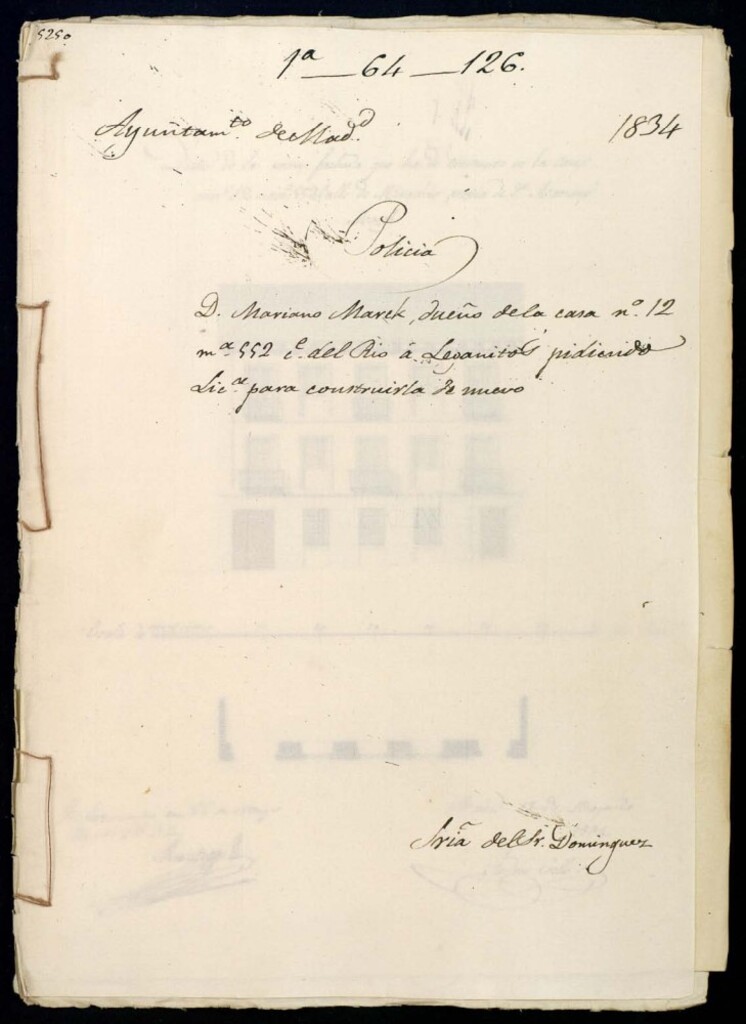 525o
1ª—64—126.
Ayuntam.to de Mad.d 1834
Policia
D. Mariano Marek, dueño de la casa nº. 12
m.ª 552 c.e del Rio á Leganitos pidiendo
Lic.ª para construirla de nuevo
Sria del Sr. Dominguez